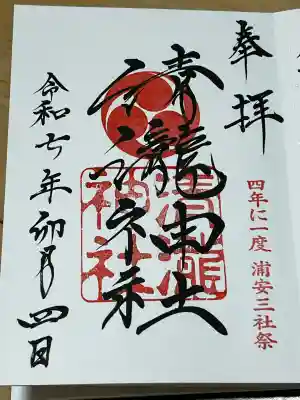 奉拝
四年に一度 浦安三社祭
清瀧神社
清瀧
神社
令和七年卯月四日